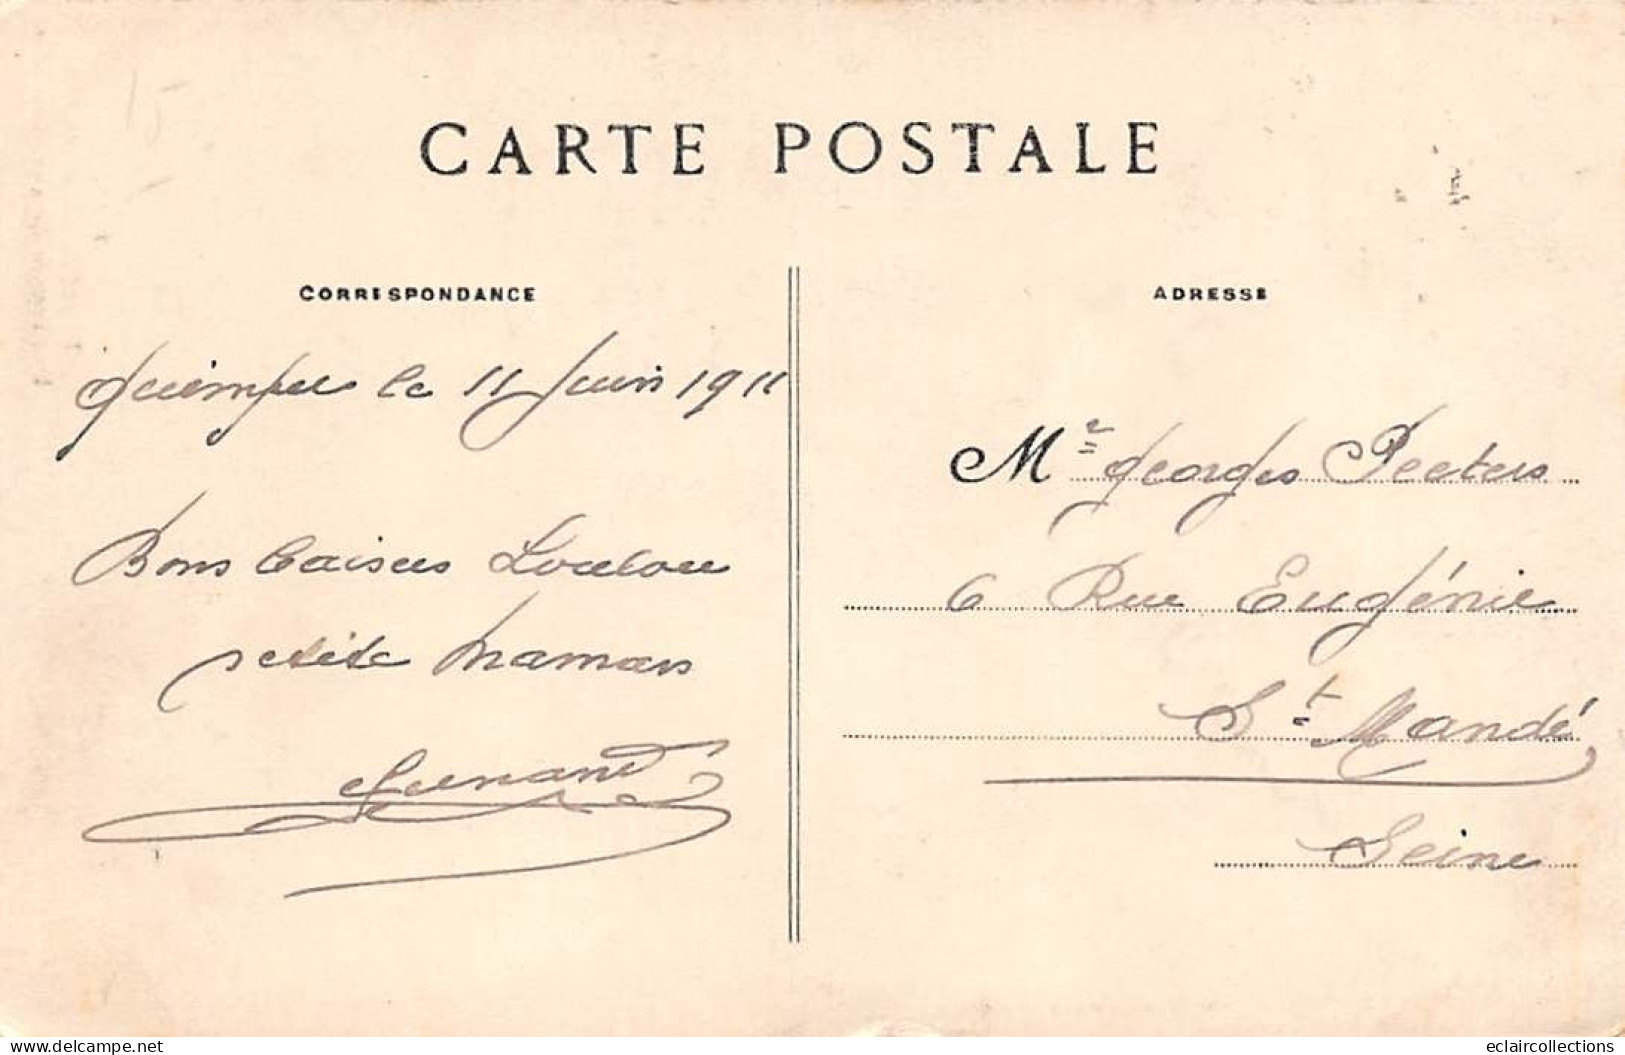 15
CARTE POSTALE
CORRESPONDANCE
ADRESSE
Quimper le 11 Juin 1911
Bons baisers Loulou
petite maman
Fernand
Me Georges Peeters
6 Rue Eugénie
St Mandé
Seine
delcampe.net
eclaircollections